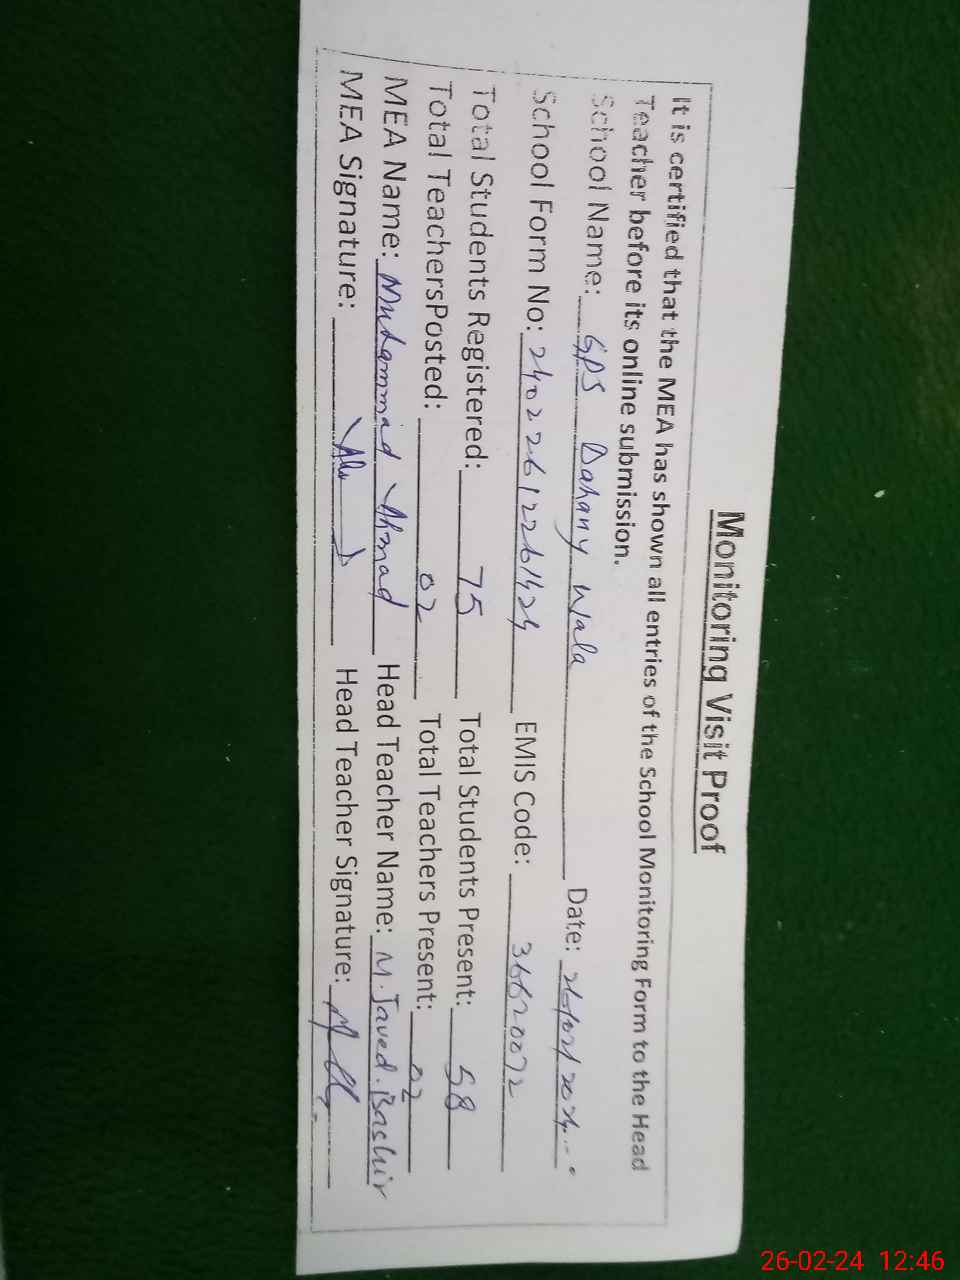 Monitoring Visit Proof
It is certified that the MEA has shown all entries of the School Monitoring Form to the Head
Teacher before its online submission.
School Name: GPS Dahany Wala Date: 26/02/2024
School Form No: 24022612261424 EMIS Code: 36620072
Total Students Registered: 75 Total Students Present: 58
Total TeachersPosted: 02 Total Teachers Present: 02
MEA Name: Muhammad Ahmad Head Teacher Name: M. Javed. Bashir
MEA Signature: Head Teacher Signature:
26-02-24 12:46